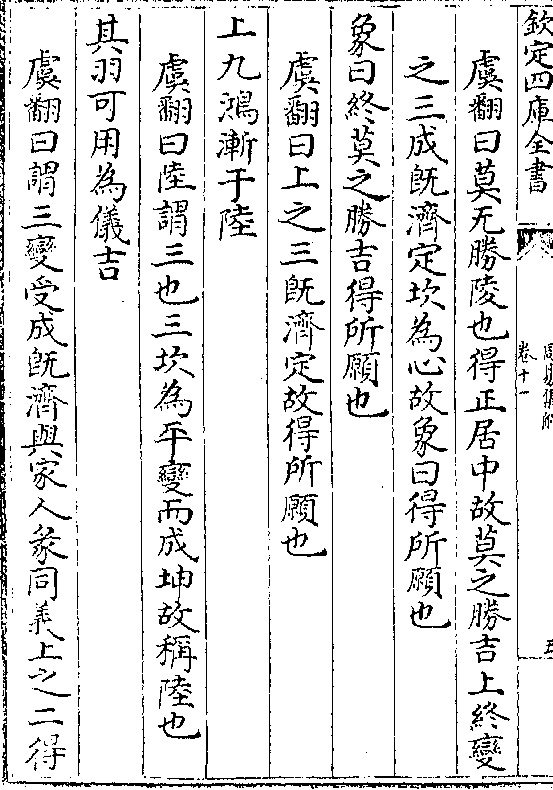 欽定四庫全書
周易集解
卷十一
五
虞翻曰莫无勝陵也得正居中故莫之勝吉上終變
之三成旣濟定坎為心故象曰得所願也
象曰終莫之勝吉得所願也
虞翻曰上之三旣濟定故得所願也
上九鴻漸于陸
虞翻曰陸謂三也三坎為平變而成坤故稱陸也
其羽可用為儀吉
虞翻曰謂三變受成旣濟與家人彖同義上之二得